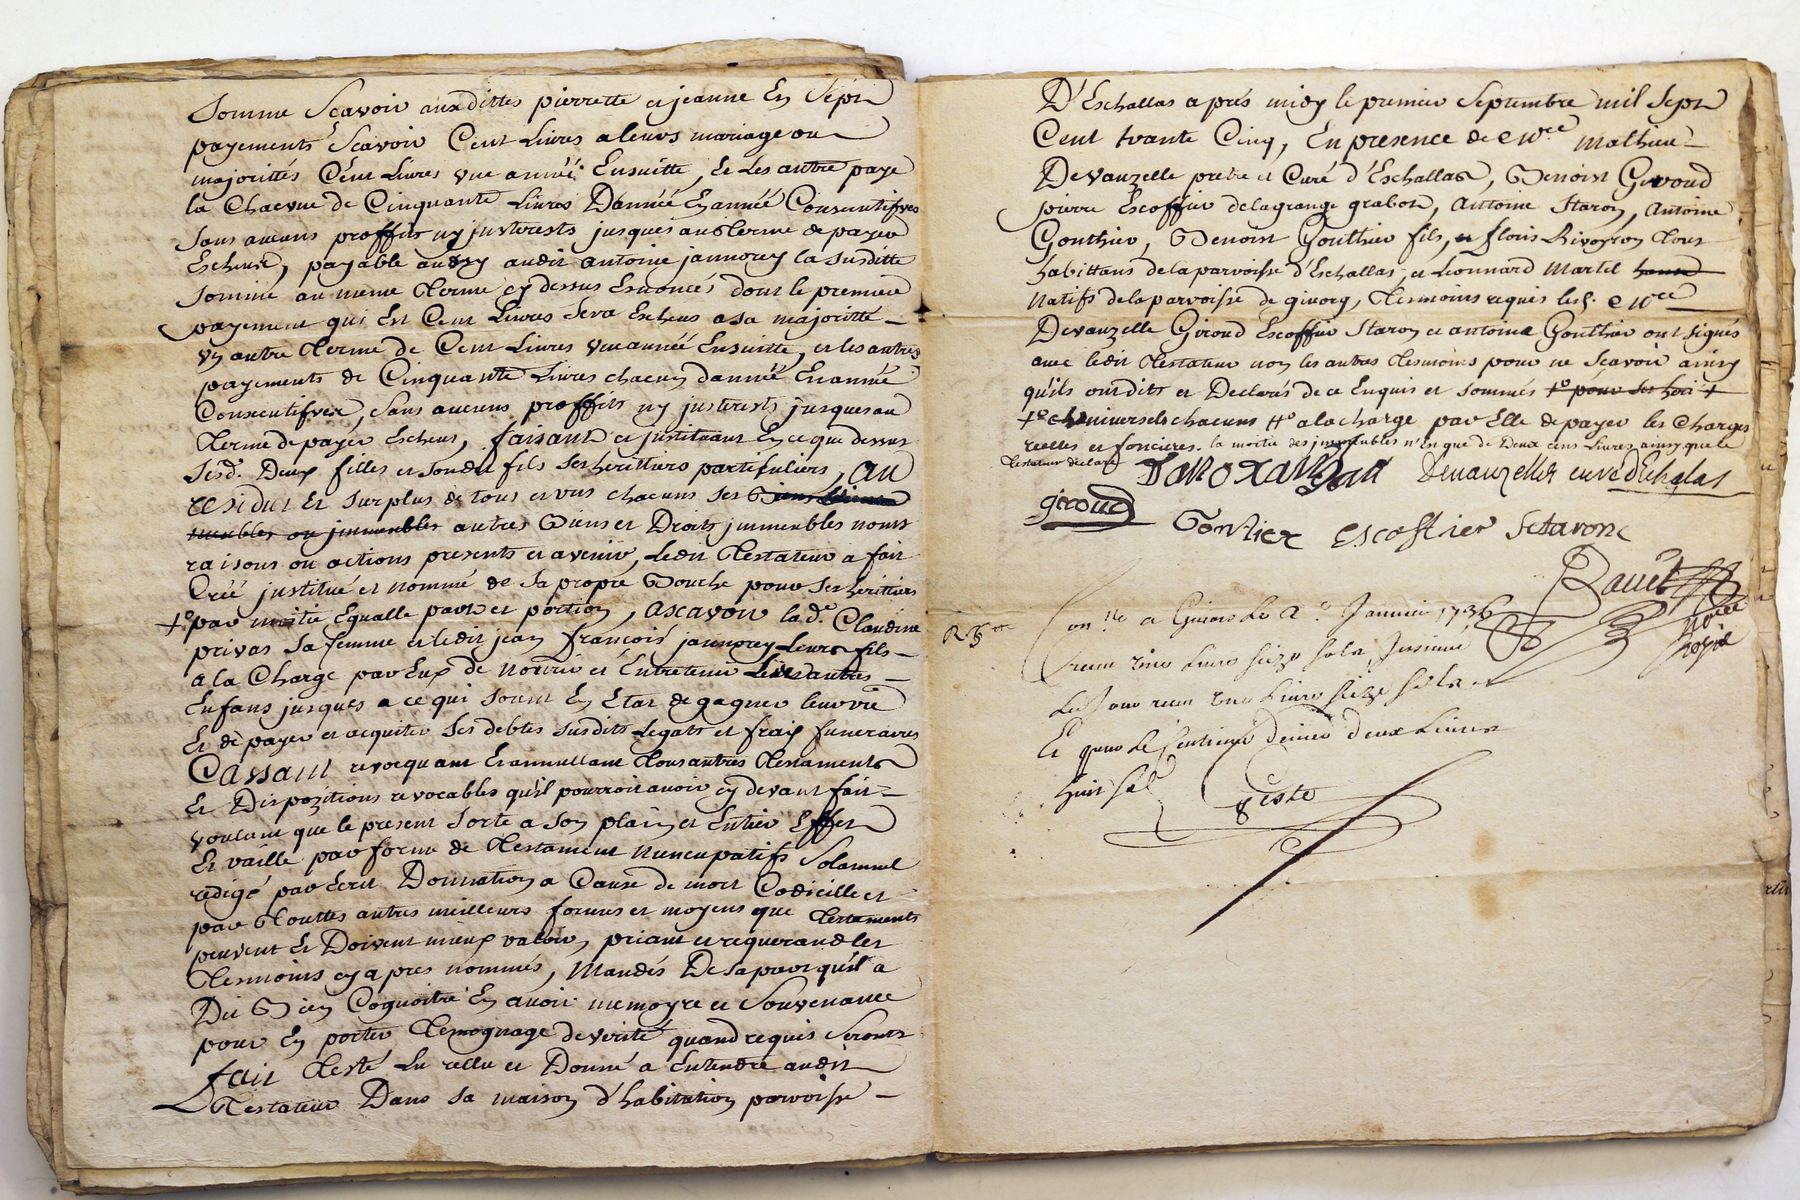 Somme Scavoir auxdittes pierrette et jeanne En Sept
payements Scavoir Cent Livres a leurs mariage ou
majorittés Cent Livres vne année Ensuitte, Et Les autre paye
la Chacune de Cinquante Livres Dannéé En année Consecutifves
Sans aucuns proffits ny justerests jusques aus terme de payer
Escheus, payable aussy audit antoine jannorey la susditte
Somme au meme terme cy dessus Enoncés dont le premiere
payement qui Est Cent Livres Sera Escheus a sa majoritté
vn autre terme de Cent Livres vne année Ensuitte, et les autres
payements de Cinquante Livres chacun dannéé En année
Consecutifves, Sans aucuns proffits ny justerests jusques au
terme de payer Escheus, faisant et justituant En ce que dessus
Sesd. Deux filles et Sondit fils Ses heritiers partifuliers, au
residut Et surplus de tous et vns chacuns ses Biens
meubles ou jmmeubles autres Biens et Droits jmmeubles noms
raisons ou actions presents et avenir, Ledit Testateur a fait
Créé justitué et nommé de Sa propre Bouche pour Ses heritiers
+° par moitie Equalle part et portion, ascavoir la d.e Claudine
privas Sa femme et ledit jean françois jannorey Leurs fils
a la Charge par Eux de nourir et Entretenir Leurs autres
Enfans jusques a ce qui soient En Etat de gagner leur vie
Et de payer et acquiter Ses debtes susdits Legats et fraix funeraires
Cassant revocquant Et annullant tous autres Testaments
Et Dispozitions revocables qu'il pourroit avoir cy devant fait
voulant que le present Sorte a Son plain et Entier Effet
Et vaille par forme de Testament nuncupatifs Solamnel
redigé par Ecrit Donnation a Cause de mort Codicille et
par Touttes autres meilleurs formes et moyens que Testaments
peuvent Et Doivent mieux valoir, priant et requerand les
Tesmoins cy apres nommés, Mandés De sa part qu'il a
Dit Bien Cognoitre En avoir memoyre et Souvenance
pour En porter Temognage de verité quand requis Seronts
fait Testé Lu rellu et Donné a Entendre audit
Testateur Dans Sa maison d'habitation parroisse
D'Eschallas apres midy le premier Septembre mil Sept
Cent trante Cinq, En presence de mathieu
Devauzelle pretre et Curé d'Eschallas, Benoist Giroud
pierre Escoffier delagrange grabot, Antoine Staron, Antoine
Gonthier, Benoist Gonthier fils, et floris Rivoyron tous
habittans de la parroisse d'Eschallas, et Leonnard Martel
Natifs de la parroisse de givorg, Tesmoins requis les s.
Devauzelle Giroud Escoffier Staron et antoine Gonthier ont signés
avec ledit Testateur non les autres Tesmoins pour ne Scavoir ainsy
qu'ils ont dits et Declarés de ce Enquis et Sommés +° pour
+° chacuns +° a la charge par Elle de payer les Charges
reelles et foncieres. la moitie des jmmeubles n'En que de Deux cens Livres ainsy que le
Testateur declare Devauzelles curé dEchalas
giroud Gontier escoffier Staron
Cont.lle a Givors Le 2.e Janvier 1736
receu vne Livre seize sols
receu vne Livre seize sols
Et pour Le Centieme denier deux Livres
huit sol